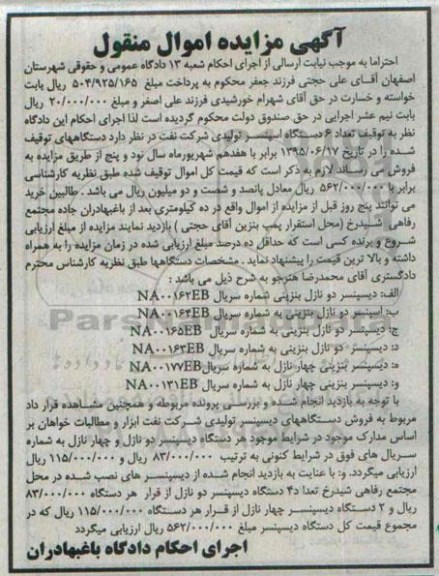 آگهی مزایده اموال منقول
احتراما به موجب نیابت ارسالی از اجرای احکام شعبه ۱۳ دادگاه عمومی و حقوقی شهرستان
اصفهان آقای علی حجتی فرزند جعفر محکوم به پرداخت مبلغ ۵۰۴/۹۲۵/۱۶۵ ریال بابت
خواسته و خسارت در حق آقای شهرام خورشیدی فرزند علی اصغر و مبلغ ۲۰/۰۰۰/۰۰۰ ریال
بابت نیم عشر اجرایی در حق صندوق دولت محکوم گردیده است لذا اجرای احکام این دادگاه
نظر به توقیف تعداد ۶ دستگاه تولیدی شرکت نفت در نظر دارد دستگاههای توقیف
شده را در تاریخ ۱۳۹۵/۰۶/۱۷ برابر با هفدهم شهریورماه سال نود و پنج از طریق مزایده به
فروش می رساند لازم به ذکر است که قیمت کل اموال توقیف شده طبق نظریه کارشناسی
برابر با ۵۶۲/۰۰۰/۰۰۰ ریال معادل پانصد و شصت و دو میلیون ریال می باشد . طالبین خرید
می توانند پنج روز قبل از مزایده از اموال واقع در ده کیلومتری بعد از باغبهادران جاده مجتمع
رفاهی شیدرخ (محل استقرار پمپ بنزین آقای حجتی ) بازدید نمایند مزایده از مبلغ ارزیابی
شروع و برنده کسی است که حداقل ده درصد مبلغ ارزیابی شده در زمان مزایده را به همراه
داشته و بالا ترین قیمت را پیشنهاد نماید . مشخصات دستگاهها طبق نظریه کارشناس محترم
دادگستری آقای محمدرضا هنرجو به شرح ذیل می باشد :
الف: دیسپنسر دو نازل بنزینی شماره سریال NA۰۰۱۶۲EB
ب: اسپنسر دو نازل بنزینی به شماره سریال NA۰۰۱۶۴EB
ج: دیسپنسر دو نازل بنزینی به شماره سریال NA۰۰۱۶۵EB
د: دیسپنسر دو نازل بنزینی به شماره سریال NA۰۰۱۶۳EB
ه: دیسپنسر بنزینی چهار نازل به شماره سریال NA۰۰۱۷۷EB
و: دیسپنسر بنزینی چهار نازل به شماره سریال NA۰۰۱۳۱EB
با توجه به بازدید انجام شده و بررسی پرونده مربوطه و همچنین مشاهده قرار داد
مربوط به فروش دستگاههای دیسپنسر تولیدی شرکت نفت ابزار و مطالبات خواهان بر
اساس مدارک موجود در شرایط موجود هر دستگاه دیسپنسر دو نازل و چهار نازل به شماره
سریال های فوق در شرایط کنونی به ترتیب ۸۳/۰۰۰/۰۰۰ ریال و ۱۱۵/۰۰۰/۰۰۰ ریال
ارزیابی میگردد. و: با عنایت به بازدید انجام شده از دیسپنسر های نصب شده در محل
مجتمع رفاهی شیدرخ تعداد ۴ دستگاه دیسپنسر دو نازل از قرار هر دستگاه ۸۳/۰۰۰/۰۰۰
ریال و ۲ دستگاه دیسپنسر چهار نازل از قرار هر دستگاه ۱۱۵/۰۰۰/۰۰۰ ریال که در
مجموع قیمت کل دستگاه دیسپنسر مبلغ ۵۶۲/۰۰۰/۰۰۰ ریال ارزیابی میگردد
اجرای احکام دادگاه باغبهادران